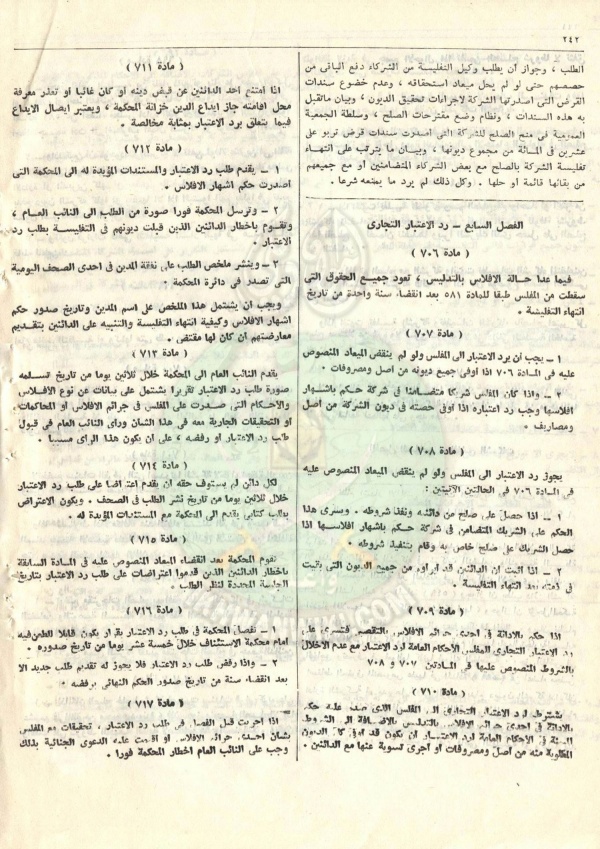 ٢٤٢
الطلب ، وجواز أن يطلب وكيل التفليسة من الشركاء دفع الباقي من
حصصهم حتى لو لم يحل ميعاد استحقاقه ، وعدم خضوع سندات
القرض التي أصدرتها الشركة لاجراءات تحقيق الديون ، وبيان ماتقبل
به هذه السندات ، ونظام وضع مقترحات الصلح ، وسلطة الجمعية
العمومية في منح الصلح للشركة التي أصدرت سندات قرض تربو على
عشرين في المائة من مجموع ديونها ، وبيان ما يترتب على انتهاء
تفليسة الشركة بالصلح مع بعض الشركاء المتضامنين أو مع جميعهم
من بقائها قائمة أو حلها . وكل ذلك لم يرد ما يمنعه شرعا .
الفصل السابع - رد الاعتبار التجارى
( مادة ٧٠٦ )
فيما عدا حالة الافلاس بالتدليس ، تعود جميع الحقوق التي
سقطت من المفلس طبقا للمادة ٥٨١ بعد انقضاء سنة واحدة من تاريخ
انتهاء التفليسة .
( مادة ٧٠٧ )
١ - يجب أن يرد الاعتبار الى المفلس ولو لم ينقض الميعاد المنصوص
عليه في المادة ٧٠٦ اذا أوفى جميع ديونه من أصل ومصروفات .
٢ - واذا كان المفلس شريكا متضامنا في شركة حكم باشهار
افلاسها وجب رد اعتباره اذا أوفى حصته في ديون الشركة من أصل
ومصاريف .
( مادة ٧٠٨ )
يجوز رد الاعتبار الى المفلس ولو لم ينقض الميعاد المنصوص عليه
في المادة ٧٠٦ في الحالتين الآتيتين :
١ - اذا حصل على صلح من دائنيه ونفذ شروطه . ويسرى هذا
الحكم على الشريك المتضامن في شركة حكم باشهار افلاسها اذا
حصل الشريك على صلح خاص به وقام بتنفيذ شروطه .
٢ - اذا أثبت أن الدائنين قد أبرأوه من جميع الديون التي بقيت
في ذمته بعد انتهاء التفليسة .
( مادة ٧٠٩ )
اذا حكم بالادانة في احدى جرائم الافلاس بالتقصير فتسرى على
رد الاعتبار التجارى للمفلس الأحكام العامة لرد الاعتبار مع عدم الاخلال
بالشروط المنصوص عليها في المادتين ٧٠٧ و ٧٠٨
( مادة ٧١٠ )
يشترط لرد الاعتبار التجارى الى المفلس الذى صدر عليه حكم
بالادانة في احدى جرائم الافلاس بالتدليس بالاضافة الى الشروط
المبينة في الأحكام العامة لرد الاعتبار أن يكون قد أوفى كل الديون
المطلوبة منه من أصل ومصروفات أو أجرى تسوية عنها مع الدائنين .
( مادة ٧١١ )
اذا امتنع أحد الدائنين عن قبض دينه أو كان غائبا أو تعذر معرفة
محل اقامته جاز ايداع الدين خزانة المحكمة ، ويعتبر ايصال الايداع
فيما يتعلق برد الاعتبار بمثابة مخالصة .
( مادة ٧١٢ )
١ - يقدم طلب رد الاعتبار والمستندات المؤيدة له الى المحكمة التى
أصدرت حكم اشهار الافلاس .
٢ - وترسل المحكمة فورا صورة من الطلب الى النائب العام ،
وتقوم باخطار الدائنين الذين قبلت ديونهم في التفليسة بطلب رد
الاعتبار .
٣ - وينشر ملخص الطلب على نفقة المدين في احدى الصحف اليومية
التى تصدر في دائرة المحكمة .
ويجب أن يشتمل هذا الملخص على اسم المدين وتاريخ صدور حكم
اشهار الافلاس وكيفية انتهاء التفليسة والتنبيه على الدائنين بتقديم
معارضتهم ان كان لها مقتضى .
( مادة ٧١٣ )
يقدم النائب العام الى المحكمة خلال ثلاثين يوما من تاريخ تسلمه
صورة طلب رد الاعتبار تقريرا يشتمل على بيانات عن نوع الافلاس
والأحكام التى صدرت على المفلس في جرائم الافلاس أو المحاكمات
أو التحقيقات الجارية معه في هذا الشأن ورأى النائب العام في قبول
طلب رد الاعتبار أو رفضه ، على أن يكون هذا الرأى مسببا .
( مادة ٧١٤ )
لكل دائن لم يستوف حقه أن يقدم اعتراضا على طلب رد الاعتبار
خلال ثلاثين يوما من تاريخ نشر الطلب في الصحف . ويكون الاعتراض
بطلب كتابى يقدم الى المحكمة مع المستندات المؤيدة له .
( مادة ٧١٥ )
تقوم المحكمة بعد انقضاء الميعاد المنصوص عليه في المادة السابقة
باخطار الدائنين الذين قدموا اعتراضات على طلب رد الاعتبار بتاريخ
الجلسة المحددة لنظر الطلب .
( مادة ٧١٦ )
١ - تفصل المحكمة في طلب رد الاعتبار بقرار يكون قابلا للطعن فيه
أمام محكمة الاستئناف خلال خمسة عشر يوما من تاريخ صدوره .
٢ - واذا رفض طلب رد الاعتبار فلا يجوز له تقديم طلب جديد الا
بعد انقضاء سنة من تاريخ صدور الحكم النهائى برفضه .
( مادة ٧١٧ )
اذا أجريت قبل الفصل في طلب رد الاعتبار ، تحقيقات مع المفلس
بشأن احدى جرائم الافلاس أو أقيمت عليه الدعوى الجنائية بذلك
وجب على النائب العام اخطار المحكمة فورا .